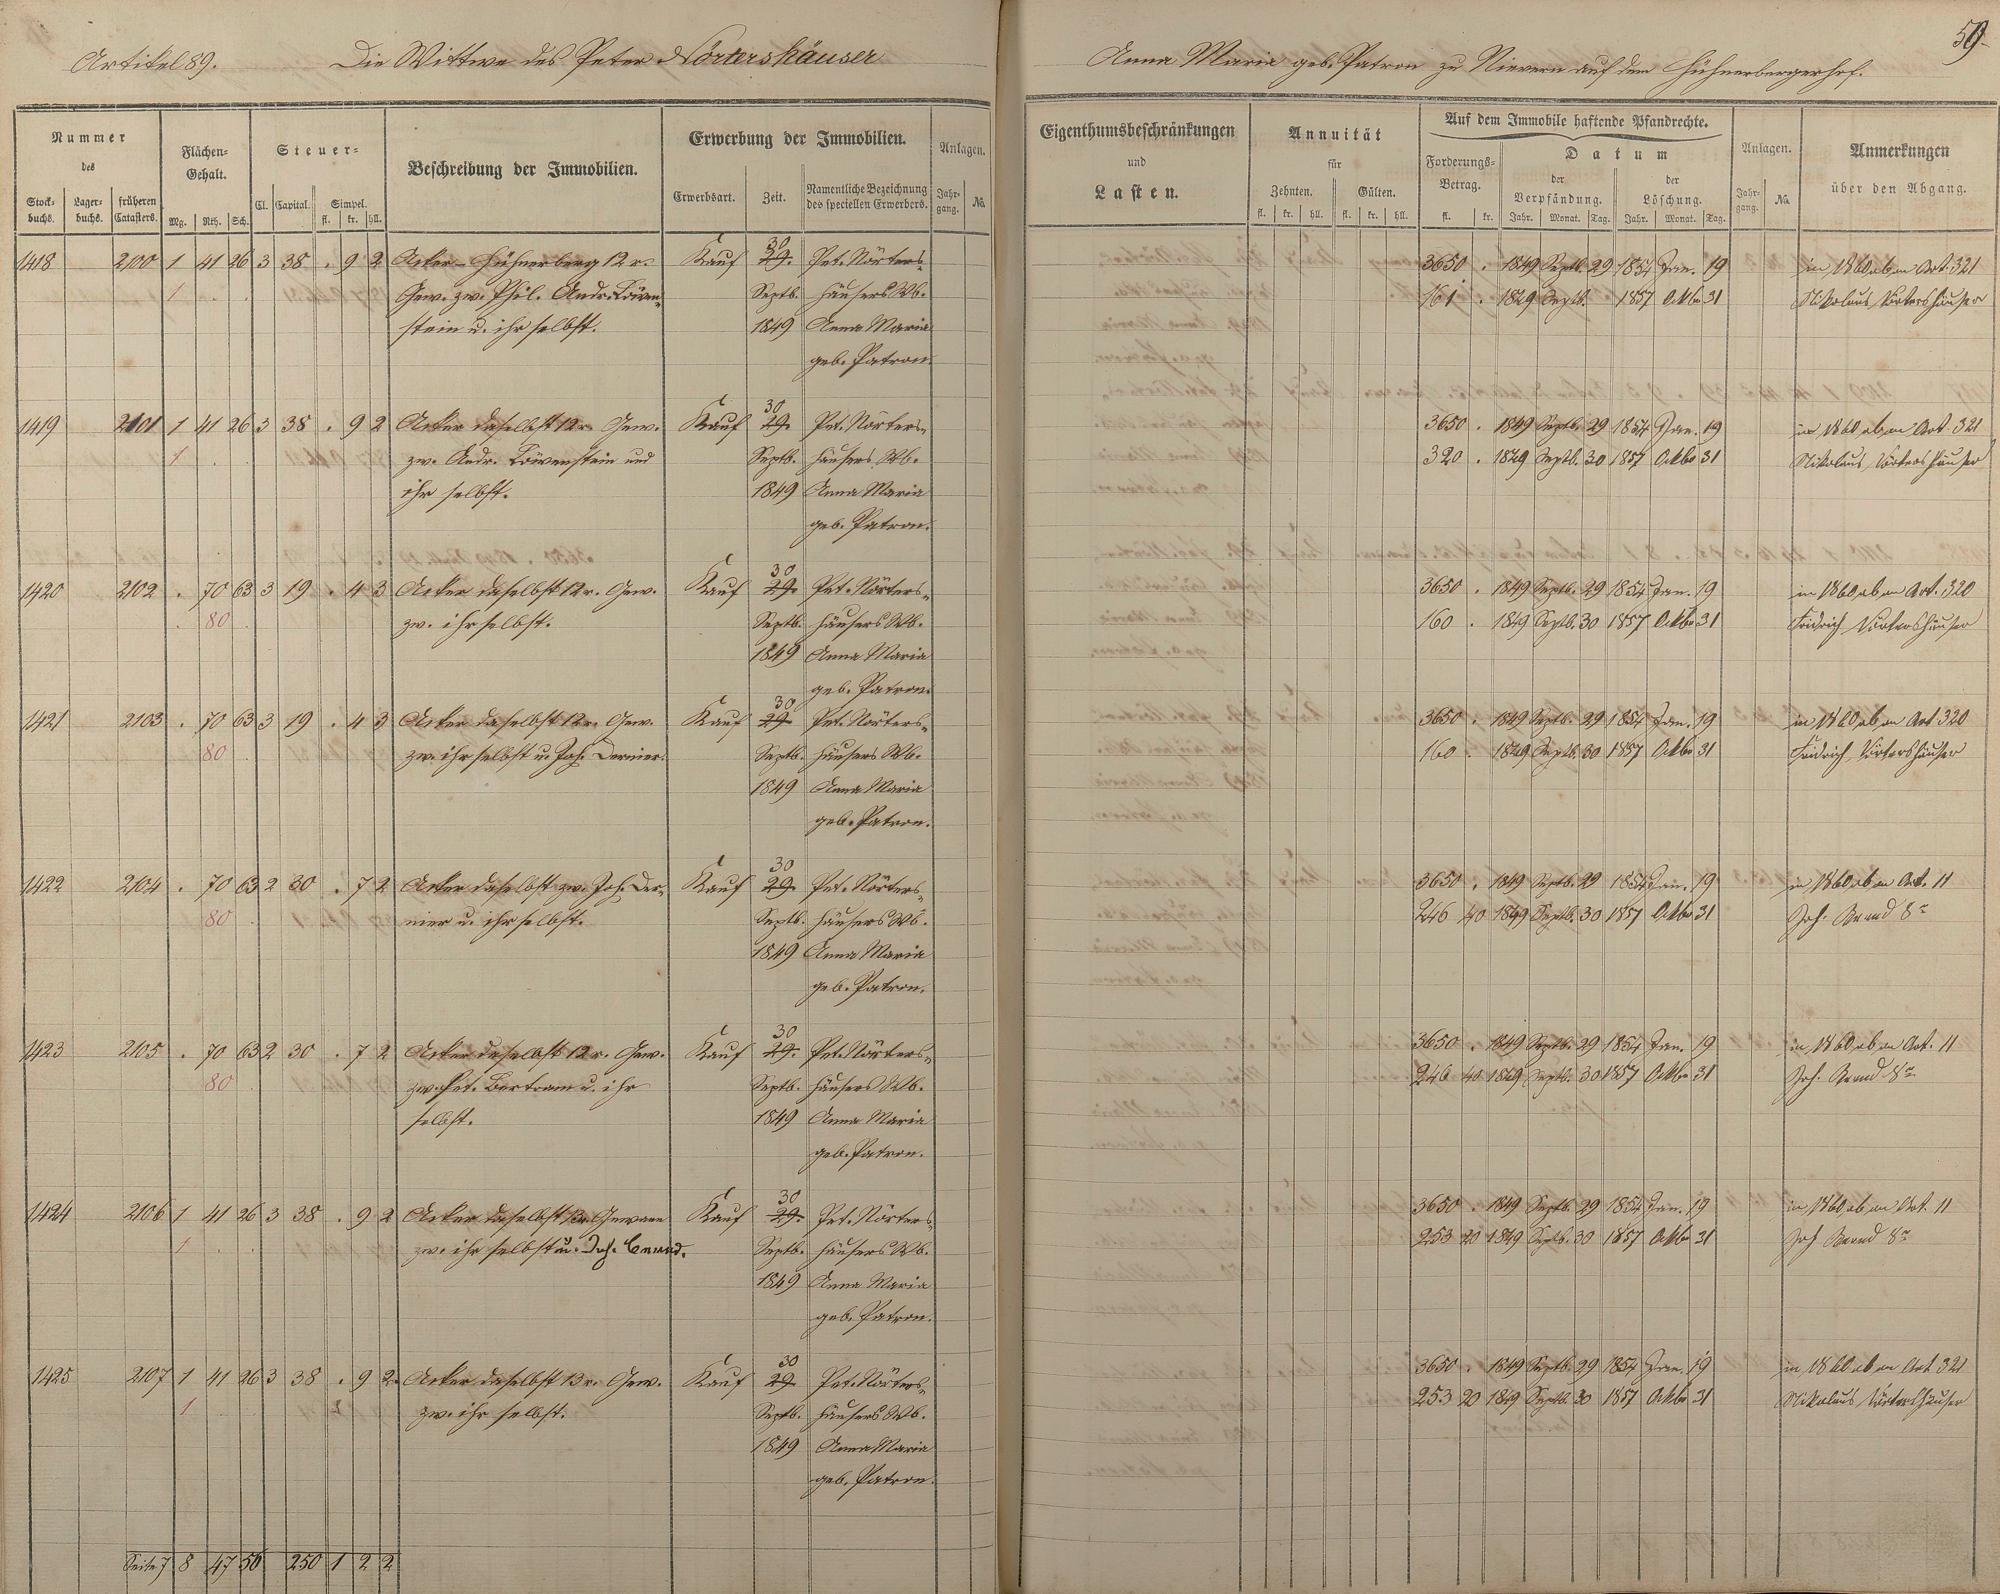 59.
Artikel 89. Die Wittwe des Peter Nörtershäuser Anna Maria geb. Patron zu Nievern auf dem Hühnerbergerhof.
Nummer
des
Stock-buchs. Lager-buchs. früheren Catasters.
Flächen-Gehalt.
Mg. Rth. Sch.
Steuer-
Cl. Capital. Simpel.
fl. kr. hll.
Beschreibung der Immobilien.
Erwerbung der Immobilien.
Erwerbsart. Zeit. Namentliche Bezeichnung des speciellen Erwerbers.
Anlagen.
Jahr-gang. No.
Eigenthumsbeschränkungen
und
Lasten.
Annuität
für
Zehnten. Gülten.
fl. kr. hll. fl. kr. hll.
Auf dem Immobile haftende Pfandrechte.
Forderungs-Betrag.
fl. kr.
Datum
der Verpfändung. der Löschung.
Jahr. Monat. Tag. Jahr. Monat. Tag.
Anlagen.
Jahr-gang. No.
Anmerkungen
über den Abgang.
30
1418 2100 1 41 26 3 38 . 9 2 Acker-Hühnerberg 12r. Kauf 29. Pet. Nörters- 3650 . 1849 Septb. 29 1854 Jan. 19 in 1860 ab an Art. 321
1 . . Gew. zw. Phil. Andr. Löwen- Septb. häusers Wb. 161 . 1849 Septb. 1857 Oktbr 31 Nikolaus Nörtershäuser
stein u. ihr selbst. 1849 Anna Maria
geb. Patron.
30
1419 2101 1 41 26 3 38 . 9 2 Acker daselbst 12r. Gew. Kauf 29. Pet. Nörters- 3650 . 1849 Septb. 29 1854 Jan. 19 in 1860 ab an Art. 321
1 . . zw. Andr. Löwenstein und Septb. häusers Wb. 320 . 1849 Septb. 30 1857 Oktbr 31 Nikolaus Nörtershäuser
ihr selbst. 1849 Anna Maria
geb. Patron.
30
1420 2102 . 70 63 3 19 . 4 3 Acker daselbst 12r. Gew. Kauf 29. Pet. Nörters- 3650 . 1849 Septb. 29 1854 Jan. 19 in 1860 ab an Art. 320
. 80 . zw. ihr selbst. Septb. häusers Wb. 160 . 1849 Septb. 30 1857 Oktbr 31 Fridrich Nörtershäuser
1849 Anna Maria
geb. Patron.
30
1421 2103 . 70 63 3 19 . 4 3 Acker daselbst 12r. Gew. Kauf 29. Pet. Nörters- 3650 . 1849 Septb. 29 1854 Jan. 19 in 1860 ab an Art 320
80 . zw. ihr selbst u. Joh. Dernier. Septb. häusers Wb. 160 . 1849 Septb. 30 1857 Oktbr 31 Fridrich Nörtershäuser
1849 Anna Maria
geb. Patron.
30
1422 2104 . 70 63 2 30 . 7 2 Acker daselbst zw. Joh. Der- Kauf 29. Pet. Nörters- 3650 . 1849 Septb. 29 1854 Jan. 19 in 1860 ab an Art. 11
80 . nier u. ihr selbst. Septb. häusers Wb. 246 40 1849 Septb. 30 1857 Oktbr 31 Joh.
1849 Anna Maria
geb. Patron.
30
1423 2105 . 70 63 2 30 . 7 2 Acker daselbst 12r. Gew. Kauf 29. Pet. Nörters- 3650 . 1849 Septb. 29 1854 Jan. 19 in 1860 ab an Art. 11
80 . zw. Bertram u. ihr Septb. häusers Wb. 246 40 1849 Septb. 30 1857 Oktbr 31 Joh.
selbst. 1849 Anna Maria
geb. Patron.
30
1424 2106 1 41 26 3 38 . 9 2 Acker daselbst 13r. Gewann Kauf 29. Pet. Nörters- 3650 . 1849 Septb. 29 1854 Jan. 19 in 1860 ab an Art. 11
1 . . zw. ihr selbst u. Joh. Septb. häusers Wb. 253 20 1849 Septb. 30 1857 Oktbr 31 Joh
1849 Anna Maria
geb. Patron.
30
1425 2107 1 41 26 3 38 . 9 2 Acker daselbst 13r. Gew. Kauf 29. Pet. Nörters- 3650 . 1849 Septb. 29 1854 Jan. 19 in 1860 ab an Art 321
1 . . zw. ihr selbst. Septb. häusers Wb. 253 20 1849 Septb. 30 1857 Oktbr 31 Nikolaus Nörtershäuser
1849 Anna Maria
geb. Patron.
Seite 7 8 47 56 250 1 2 2